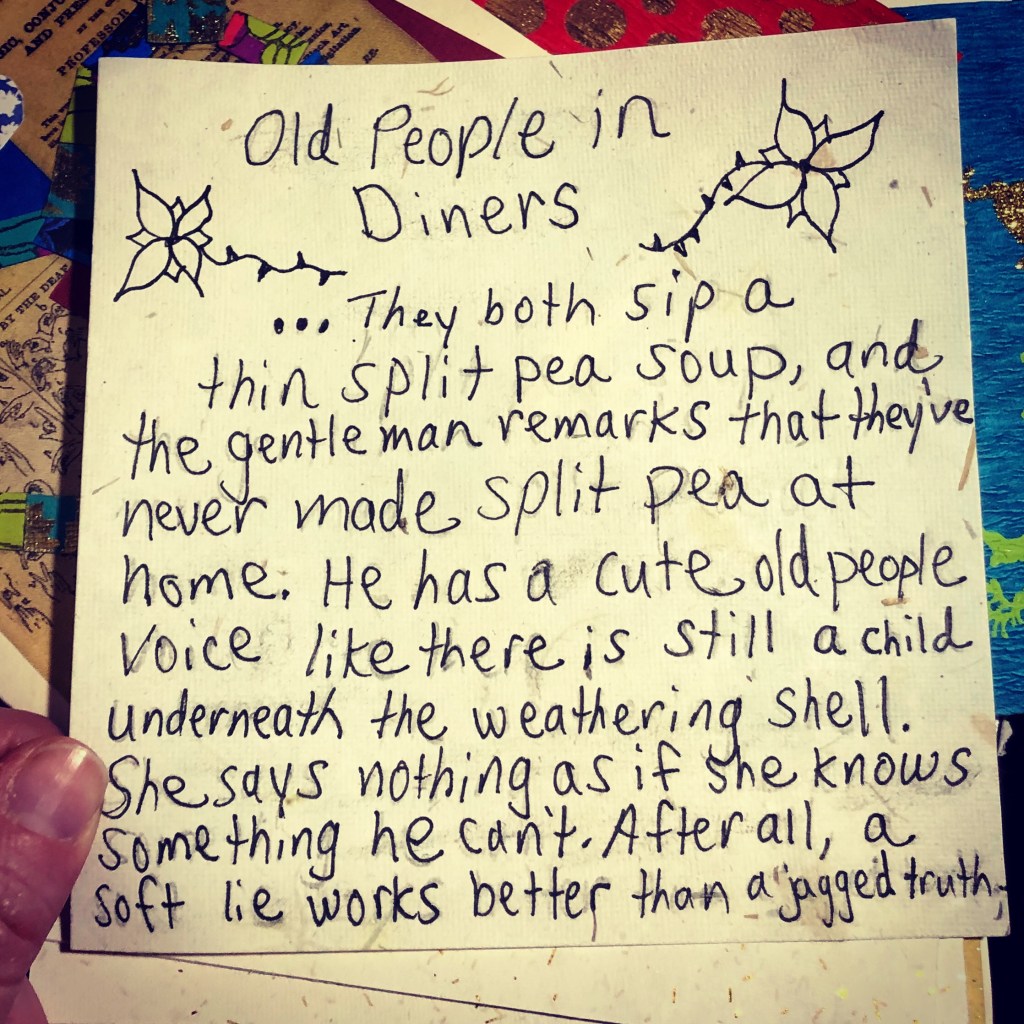 Old People in
Diners
... They both sip a
thin split pea soup, and
the gentleman remarks that they've
never made split pea at
home. He has a cute old people
voice like there is still a child
underneath the weathering shell.
She says nothing as if she knows
something he can't. After all, a
soft lie works better than a jagged truth,
PROFESSOR
BY THE DEAF